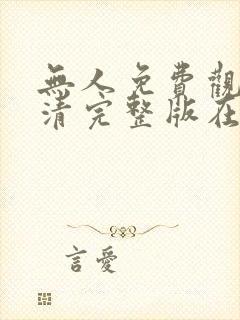 無人免費觀
清完整版在
言愛